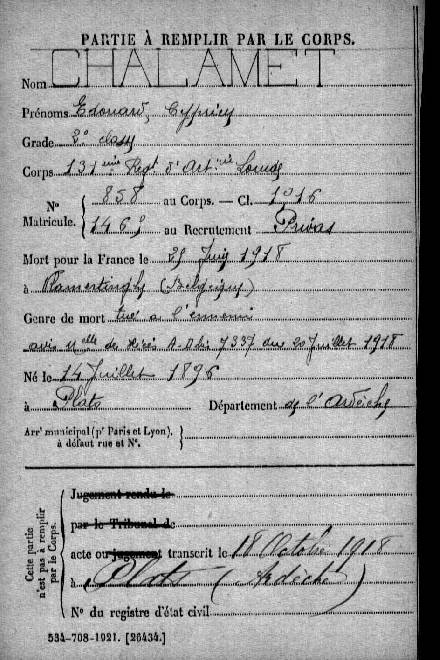 PARTIE À REMPLIR PAR LE CORPS.
Nom CHALAMET
Prénoms Edouard, Cyprien
Grade 2e classe
Corps 131ème Regt d'Artrie Lourde
Nº 858 au Corps. — Cl. 1916
Matricule. 1469 au Recrutement Privas
Mort pour la France le 25 Juin 1918
à Vlamertinghe (Belgique)
Genre de mort tué à l'ennemi
avis de décès 7337 du 20 Juillet 1918
Né le 14 Juillet 1896
à Plats Département de l'Ardèche
Arrt municipal (pr Paris et Lyon),
à défaut rue et Nº.
Cette partie
n'est pas à remplir
par le Corps.
Jugement rendu le
par le Tribunal de
acte ou jugement transcrit le 18 Octobre 1918
à Plats (Ardèche)
Nº du registre d'état civil
534-708-1921. [26434.]